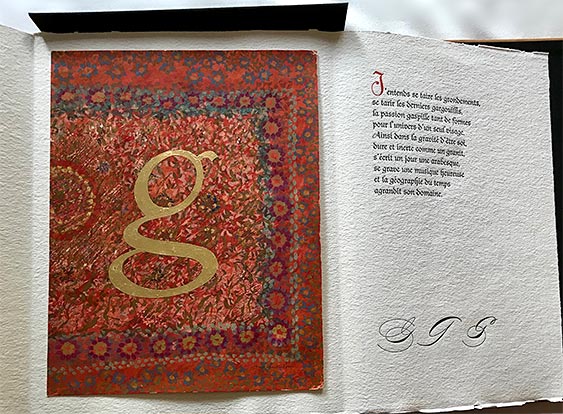 g
J'entends se taire les grondements,
se tarir les derniers gargouillis,
la passion gaspille tant de formes
pour l'univers d'un seul visage.
Ainsi dans la gravité d'être soi,
dure et inerte comme un granit,
s'écrit un jour une arabesque,
se grave une musique heureuse
et la géographie du temps
agrandit son domaine.
G G G